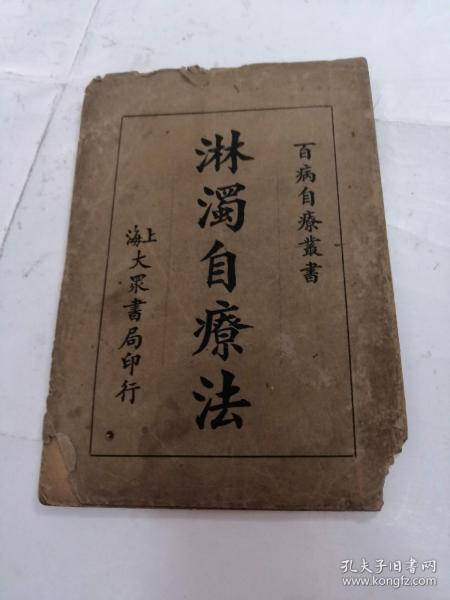 百病自療叢書
淋濁自療法
上海大眾書局印行
孔夫子旧书网
www.kongfz.com